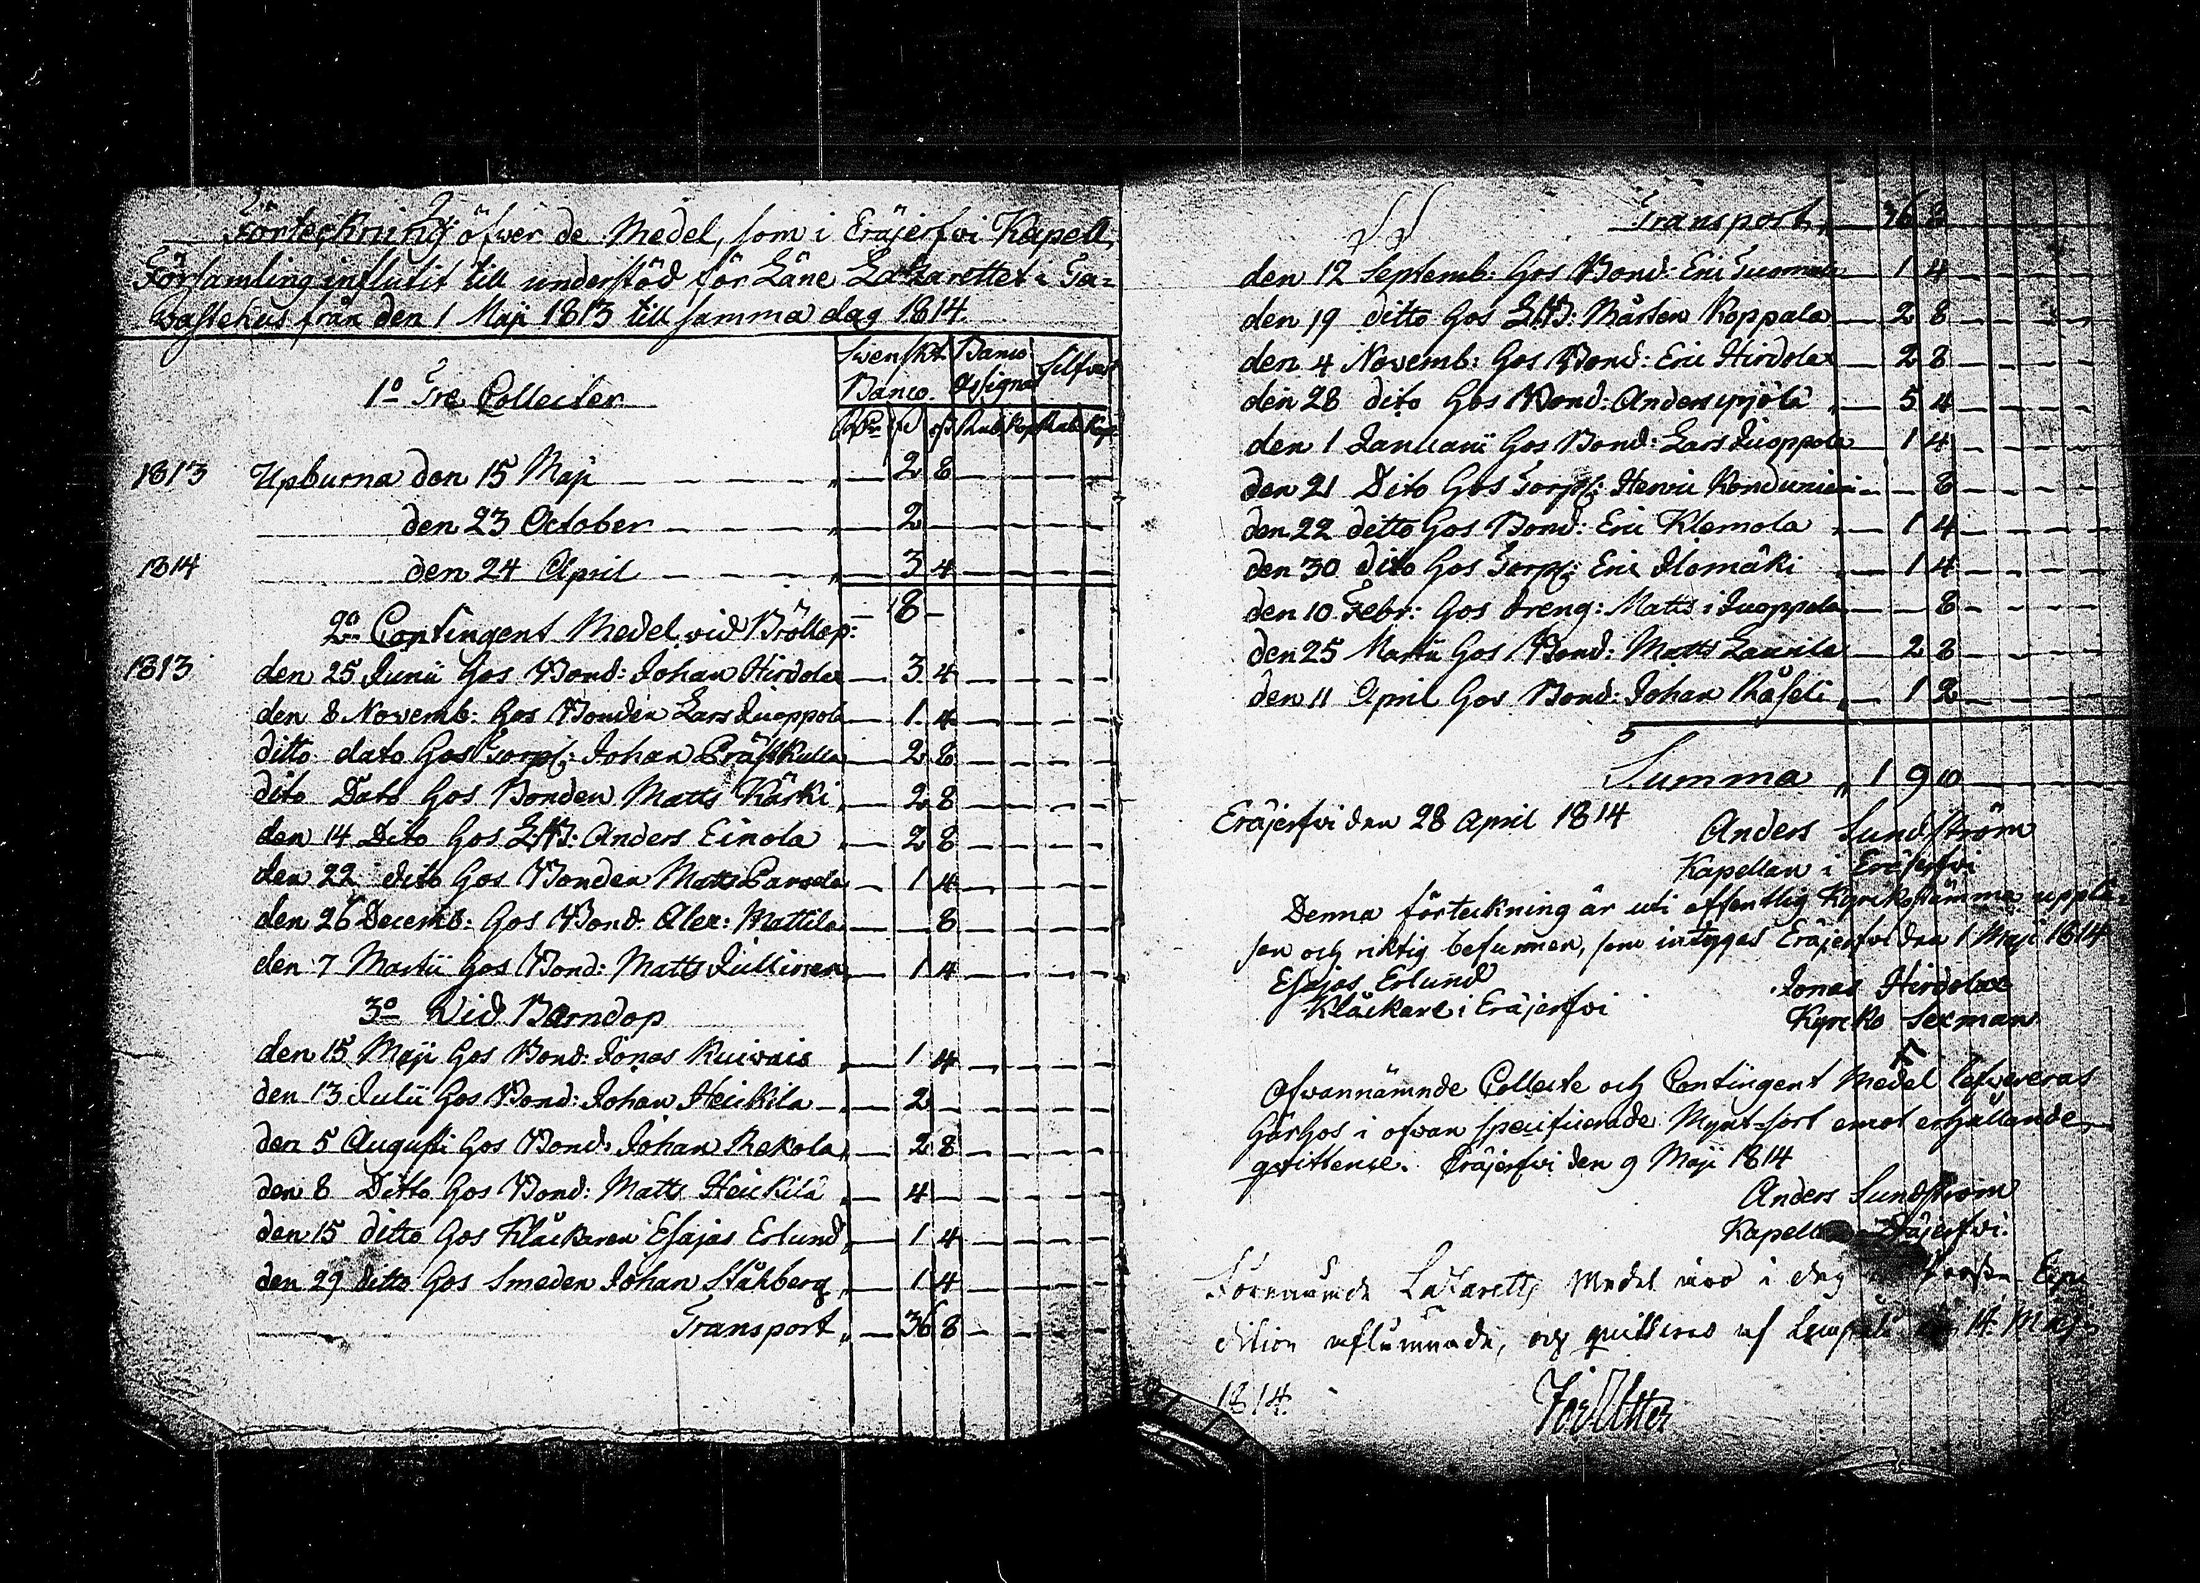 Förteckning öfwer de Medel, som i Eräjerfwi Kapell
Församling influtit till understöd för Läne Lazarettet i Ta=
wastehus från den 1 Maji 1813 till samma dag 1814.
Swenskt Banco. Banco Assignat. Silfwer
1o Tre Collecter
Rdr sk rst Rub Kop Rub Kop
1813 Upburna den 15 Maji 2 8
den 23 October 2
1814 den 24 April 3 4
8
2o Contingent Medel wid Bröllop:
1813 den 25 Junii hos Bond: Johan Hirdola 3 4
den 8 Novemb: hos Bonden Lars Juoppola 1 4
ditto dato hos Torp: Johan Prästkulla 2 8
dito Dato hos Bonden Matts Käski 2 8
den 14 Dito hos Anders Einola 2 8
den 22 dito hos Bonden Matts 1 4
den 26 Decemb: hos Bond: Alex: Mattila 8
den 7 Martii hos Bond: Matts Jullinen 1 4
3o Wid Barndop
den 15 Maji hos Bond: Jonas Kuivais 1 4
den 13 Julii hos Bond: Johan Heickila 2
den 5 Augusti hos Bond: Johan Rekola 2 8
den 8 Ditto hos Bond: Matts Heickilä 4
den 15 ditto hos Klåckaren Esajas Erlund 1 4
den 29 ditto hos Smeden Johan Ståhberg 1 4
Transport 36 8
Transport 36 8
den 12 Septemb: hos Bond: Eric Tuomala 1 4
den 19 ditto hos Mårten Koppala 2 8
den 4 Novemb: hos Bond: Eric Hirdola 2 8
den 28 dito hos Bond: Anders 5 4
den 1 Januarii hos Bond: Lars Juoppola 1 4
den 21 Dito hos Torp: Henric 8
den 22 ditto hos Bond: Eric Klemola 1 4
den 30 dito hos Torp: Eric Ilomäki 1 4
den 10 Febr: hos dreng: Matts i Juoppola 8
den 25 Martii hos Bond: Matts Laurila 2 8
den 11 April hos Bond: Johan Räfeli 1 2
Summa 1 9 10
Eräjerfwi den 28 April 1814
Anders Sundström
Kapellan i Eräjerfwi
Denna förteckning är uti offentlig Kyrkostämma upplä=
sen och riktig befunnen, som intygas Eräjerfwi den 1 Maji 1814
Esajas Erlund Jonas Hirdola
Klåckare i Eräjerfwi Kyrko Sexman
Ofwannämnde Collecte och Contingent Medel lefwereras
härhos i ofwan specificerade Mynt-sort emot erhållande
qvittence. Eräjerfwi den 9 Maji 1814
Anders Sundström
Kapellan Eräjerfwi.
Förenämnde Lazaretts Medel äro i dag Expe
dition aflemnade, och quitteras af 14 Maji
1814.